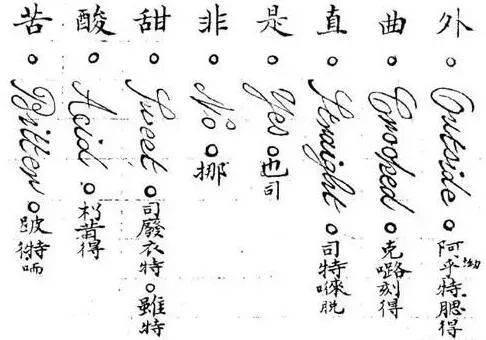 外 Outside 阿乎特腮得
曲 Crooped 克嚕刻得
直 Straight 司特唻脱
是 Yes 也司
非 No 挪
甜 Sweet 司廢衣特 雖特
酸 Acid 得
苦 Bitter 特